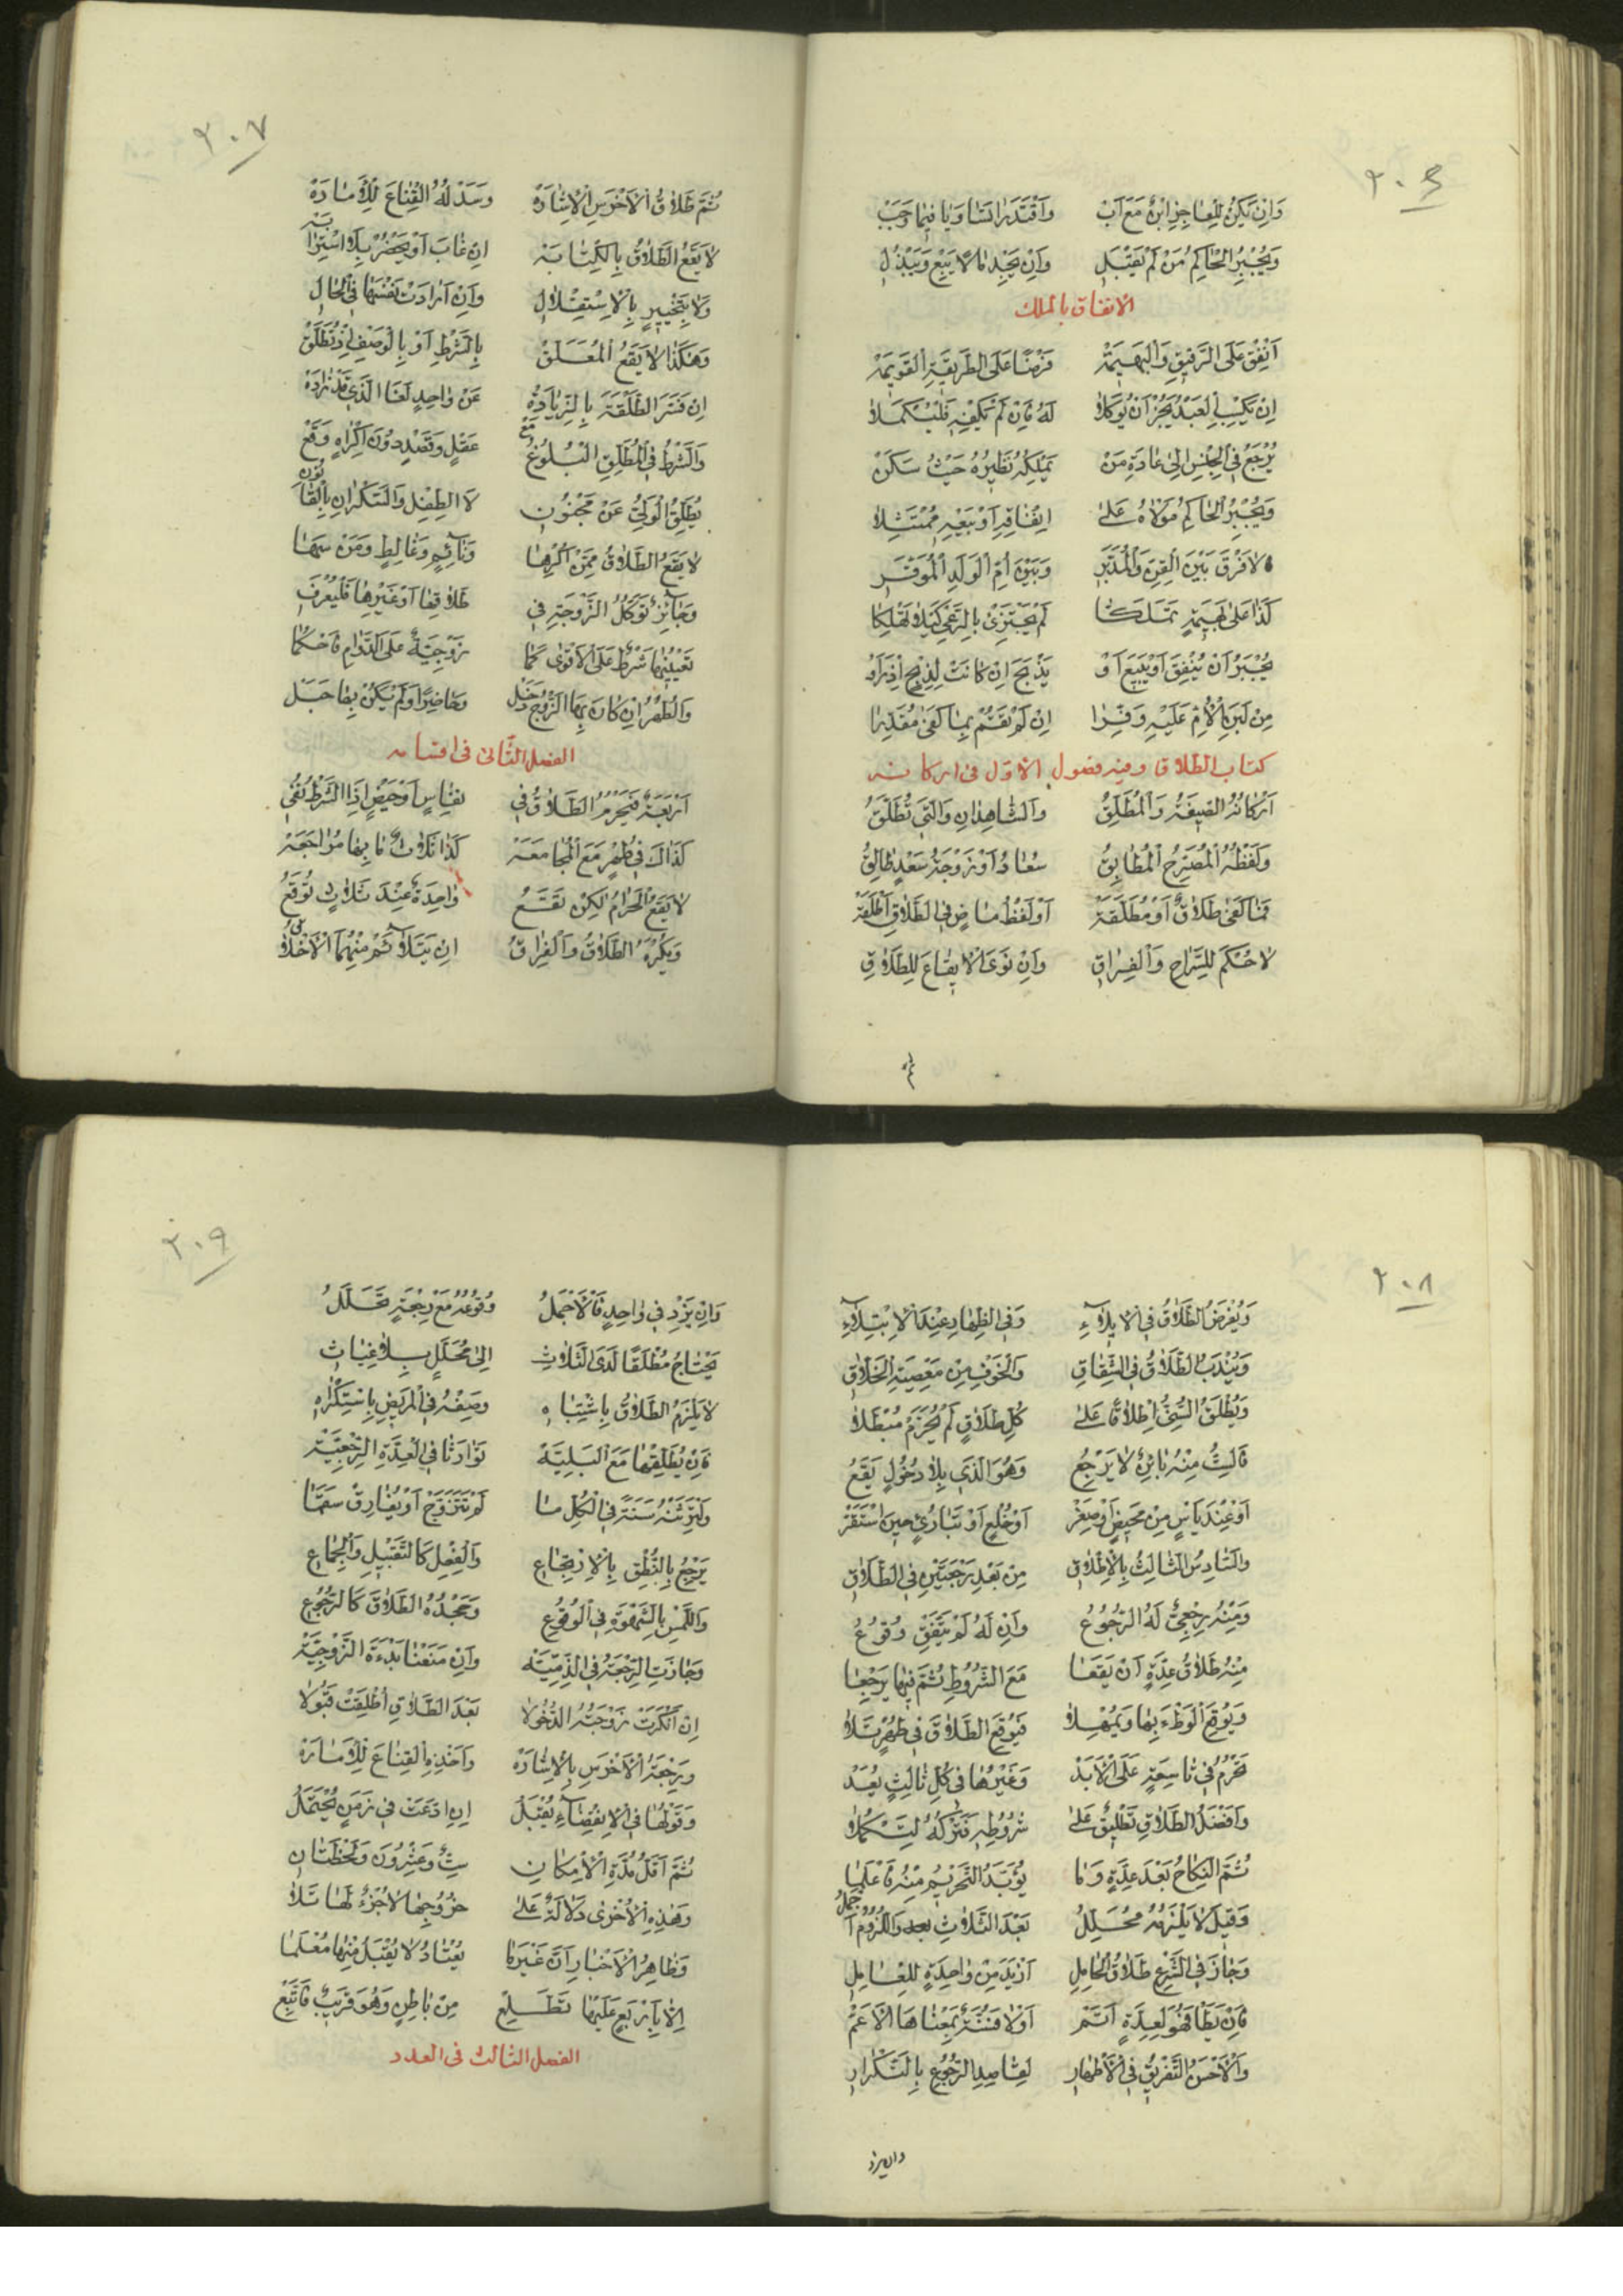 ٢٠٦
وَاِنْ يَكُنْ لِلْعاجِزِ ابْنٌ مَعَ اَبْ وَاقْتَدَرا تَساوَيا فيما وَجَبْ
وَيُجْبِرُ الْحاكِمُ مَنْ لَمْ يَقْبَلِ وَاِنْ يَجِدْ مالًا يَبِعْ وَيَبْذُلِ
الانفاق بالملك
اَنْفِقْ عَلَى الرَّقيقِ وَالْبَهيمَةْ فَرْضًا عَلَى الطَّريقَةِ الْقَويمَةْ
اِنْ يَكْسِبِ الْعَبْدُ يَجُزْ اَنْ يُوكَلا لَهُ فَاِنْ لَمْ يَكْفِهِ فَلْيُكْمَلا
يُرْجَعُ فِي الْجِنْسِ اِلى عادَةِ مَنْ يَمْلِكُهُ نَظيرُهُ حَيْثُ سَكَنْ
وَيُجْبِرُ الْحاكِمُ مَوْلاهُ عَلى اِنْفاقِهِ اَوْ بَيْعِهِ مُمْتَثِلا
لا فَرْقَ بَيْنَ الْقِنِّ وَالْمُدَبَّرِ وَبَيْنَ اُمِّ الْوَلَدِ الْمُوَقَّرِ
كَذا عَلى بَهيمَةٍ تَمَلَّكا لَمْ يَجْتَزِئْ بِالرَّعْيِ كَيْلا تَهْلِكا
يُجْبَرُ اَنْ يُنْفِقَ اَوْ يَبيعَ اَوْ يَذْبَحَ اِنْ كانَتْ لِذِبْحٍ اِذْ رَاَوْ
مِنْ لَبَنِ الْاُمِّ عَلَيْهِ وَفِّرا اِنْ لَمْ يَقُمْ بِما كَفى مُقَدَّرا
كتاب الطلاق وفيه فصول الاول فى اركانه
اَرْكانُهُ الصّيغَةُ وَالْمُطَلِّقُ وَالشّاهِدانِ وَالَّتي تُطَلَّقُ
وَلَفْظُهُ الْمُصَرَّحُ الْمُطابِقُ سُعادُ اَوْ زَوْجَةُ سَعْدٍ طالِقُ
فَما كَفى طَلاقٌ اَوْ مُطَلَّقَةْ اَوْ لَفْظُ ماضٍ فِي الطَّلاقِ اَطْلَقَهْ
لا حُكْمَ لِلسَّراحِ وَالْفِراقِ وَاِنْ نَوَى الْايقاعَ لِلطَّلاقِ
ثم
٢٠٧
ثُمَّ طَلاقُ الْاَخْرَسِ الْاِشارَةْ وَسَدْلُهُ الْقِناعَ لِلْاَمارَةْ
لا يَقَعُ الطَّلاقُ بِالْكِتابَةْ اِنْ غابَ اَوْ يَحْضُرُ بِلَا اسْتِرابَةْ
وَلا بِتَخْييرٍ بِالْاِسْتِقْلالِ وَاِنْ اَرادَتْ نَفْسَها فِي الْحالِ
وَهكَذا لا يَقَعُ الْمُعَلَّقُ بِالشَّرْطِ اَوْ بِالْوَصْفِ اِذْ تُطَلَّقُ
اِنْ فَسَّرَ الطَّلْقَةَ بِالزِّيادَةْ عَنْ واحِدٍ لَغَا الَّذي قَدْ زادَهْ
وَالشَّرْطُ فِي الْمُطَلِّقِ الْبُلُوغُ مَعْ عَقْلٍ وَقَصْدٍ دُونَ اِكْراهٍ وَقَعْ
يُطَلِّقُ الْوَلِيُّ عَنْ مَجْنُونِ لَا الطِّفْلِ وَالسَّكْرانِ بِالْقانُونِ
لا يَقَعُ الطَّلاقُ مِمَّنْ اُكْرِها وَنائِمٍ وَغالِطٍ وَمَنْ سَها
وَجائِزٌ تَوَكُّلُ الزَّوْجَةِ في طَلاقِها اَوْ غَيْرِها فَلْيُعْرَفِ
تَعْيينُها شَرْطٌ عَلَى الْاَقْوى كَما زَوْجِيَّةٌ عَلَى الدَّوامِ فَاحْكُما
وَالطُّهْرُ اِنْ كانَ بِهَا الزَّوْجُ دَخَلْ وَحاضِرًا وَلَمْ يَكُنْ بِها حَبَلْ
الفصل الثانى فى اقسامه
اَرْبَعَةٌ فَيَحْرُمُ الطَّلاقُ في نِفاسٍ اَوْ حَيْضٍ اِذَا الشَّرْطُ نُفي
كَذاكَ في طُهْرٍ مَعَ الْمُجامَعَةْ كَذا ثَلاثٌ ما بِها مُراجَعَةْ
لا يَقَعُ الْحَرامُ لكِنْ تَقَعُ واحِدَةٌ عِنْدَ ثَلاثٍ تُوقَعُ
وَيُكْرَهُ الطَّلاقُ وَالْفِراقُ اِنْ يَتَلافَ ثَمَّ مِنْهُمَا الْاَخْلاقُ
٢٠٨
وَيُفْرَضُ الطَّلاقُ فِي الْايلآءِ وَفِي الظِّهارِ عِنْدَ الْاِبْتِلآءِ
وَيُنْدَبُ الطَّلاقُ فِي الشِّقاقِ وَالْخَوْفِ مِنْ مَعْصِيَةِ الْخَلّاقِ
وَيُطْلَقُ السُّنِّيُّ اِطْلاقًا عَلى كُلِّ طَلاقٍ لَمْ يُحَرَّمْ مُبْطَلا
ثالِثُ مِنْهُ بائِنٌ لا يَرْجِعُ وَهُوَ الَّذي بِلا دُخُولٍ يَقَعُ
اَوْ عِنْدَ يَأْسٍ مِنْ مَحيضٍ اَوْ صِغَرْ اَوْ خُلْعٍ اَوْ تَباري حينَ اسْتَقَرّْ
وَالسّادِسُ الثّالِثُ بِالْاِطْلاقِ مِنْ بَعْدِ رَجْعَتَيْنِ فِي الطَّلاقِ
وَمِنْهُ رِجْعِيٌّ لَهُ الرُّجُوعُ وَاِنْ لَهُ لَمْ يَتَّفِقْ وُقُوعُ
مِنْهُ طَلاقُ عِدَّةٍ اَنْ يَقَعا مَعَ الشُّرُوطِ ثُمَّ فيها يَرْجِعا
وَيُوقِعَ الْوَطْءَ بِها وَيُمْهِلا فَيُوقِعَ الطَّلاقَ في طُهْرٍ تَلا
تَحْرُمُ في تاسِعَةٍ عَلَى الْاَبَدْ وَغَيْرُها في كُلِّ ثالِثٍ يُعَدّْ
وَاَفْضَلُ الطَّلاقِ تَطْليقٌ عَلى شُرُوطِهِ فَتَرْكُهُ لِتَكْمُلا
ثُمَّ النِّكاحُ بَعْدَ عِدَّةٍ وَما يُؤَبَّدُ التَّحْريمُ مِنْهُ فَاعْلَما
وَقيلَ لا يَلْزَمُهُ مُحَلِّلُ بَعْدَ الثَّلاثِ وَاللُّزُومُ اَجْمَلُ
وَجازَ فِي الشَّرْعِ طَلاقُ الْحامِلِ اَزْيَدَ مِنْ واحِدَةٍ لِلْعامِلِ
فَاِنْ يَطَأْ فَهُوَ لِعِدَّةٍ اَتَمّْ اَوْ لا فَسُنَّةٌ بِمَعْناهَا الْاَعَمّْ
وَالْاَحْسَنُ التَّفْريقُ فِي الْاَطْهارِ لِقاصِدِ الرُّجُوعِ بِالتَّكْرارِ
وان يزد
٢٠٩
وَاِنْ يَزِدْ في واحِدٍ فَالْاَجْمَلُ وُقُوعُهُ مَعْ رِجْعَةٍ تَخَلَّلُ
يَحْتاجُ مُطْلَقًا لَدَى الثَّلاثِ اِلى مُحَلِّلٍ بِلا غِياثِ
لا يَلْزَمُ الطَّلاقُ بِاشْتِباهِ وَصِفْهُ فِي الْمَريضِ بِاسْتِكْراهِ
فَاِنْ يُطَلِّقْها مَعَ الْبَلِيَّةْ تَوارَثا فِي الْعِدَّةِ الرِّجْعِيَّةْ
وَلْتَرِثَنْهُ سَنَةً فِي الْكُلِّ ما لَمْ تَتَزَوَّجْ اَوْ يُفارِقْ سَقَما
يَرْجِعُ بِالنُّطْقِ بِالْاِرْتِجاعِ وَالْفِعْلِ كَالتَّقْبيلِ وَالْجِماعِ
وَاللَّمْسِ بِالشَّهْوَةِ فِي الْوُقُوعِ وَجَحْدُهُ الطَّلاقَ كَالرُّجُوعِ
وَجازَتِ الرِّجْعَةُ فِي الذِّمِّيَّةْ وَاِنْ مَنَعْنا بَدْءَةَ الزَّوْجِيَّةْ
اِنْ اَنْكَرَتْ زَوْجَتُهُ الدُّخُولا بَعْدَ الطَّلاقِ اُطْلِقَتْ قَبُولا
وَرَجْعَةُ الْاَخْرَسِ بِالْاِشارَةْ وَاَخْذِهِ الْقِناعَ لِلْاَمارَةْ
وَقَوْلُها فِي الْاِنْقِضآءِ يُقْبَلُ اِنِ ادَّعَتْ في زَمَنٍ يُحْتَمَلُ
ثُمَّ اَقَلُّ مُدَّةِ الْاِمْكانِ سِتٌّ وَعِشْرُونَ وَلَحْظَتانِ
وَهذِهِ الْاُخْرى دَلالَةٌ عَلى خُرُوجِها لا جُزْءٌ لَها تَلا
وَظاهِرُ الْاَخْبارِ اَنَّ غَيْرَ ما يُعْتادُ لا يُقْبَلُ مِنْها مُعْلَما
اِلّا بِاَرْبَعٍ عَلَيْها تَطَّلِعْ مِنْ باطِنٍ وَهُوَ قَريبٌ فَاتَّبِعْ
الفصل الثالث فى العدد